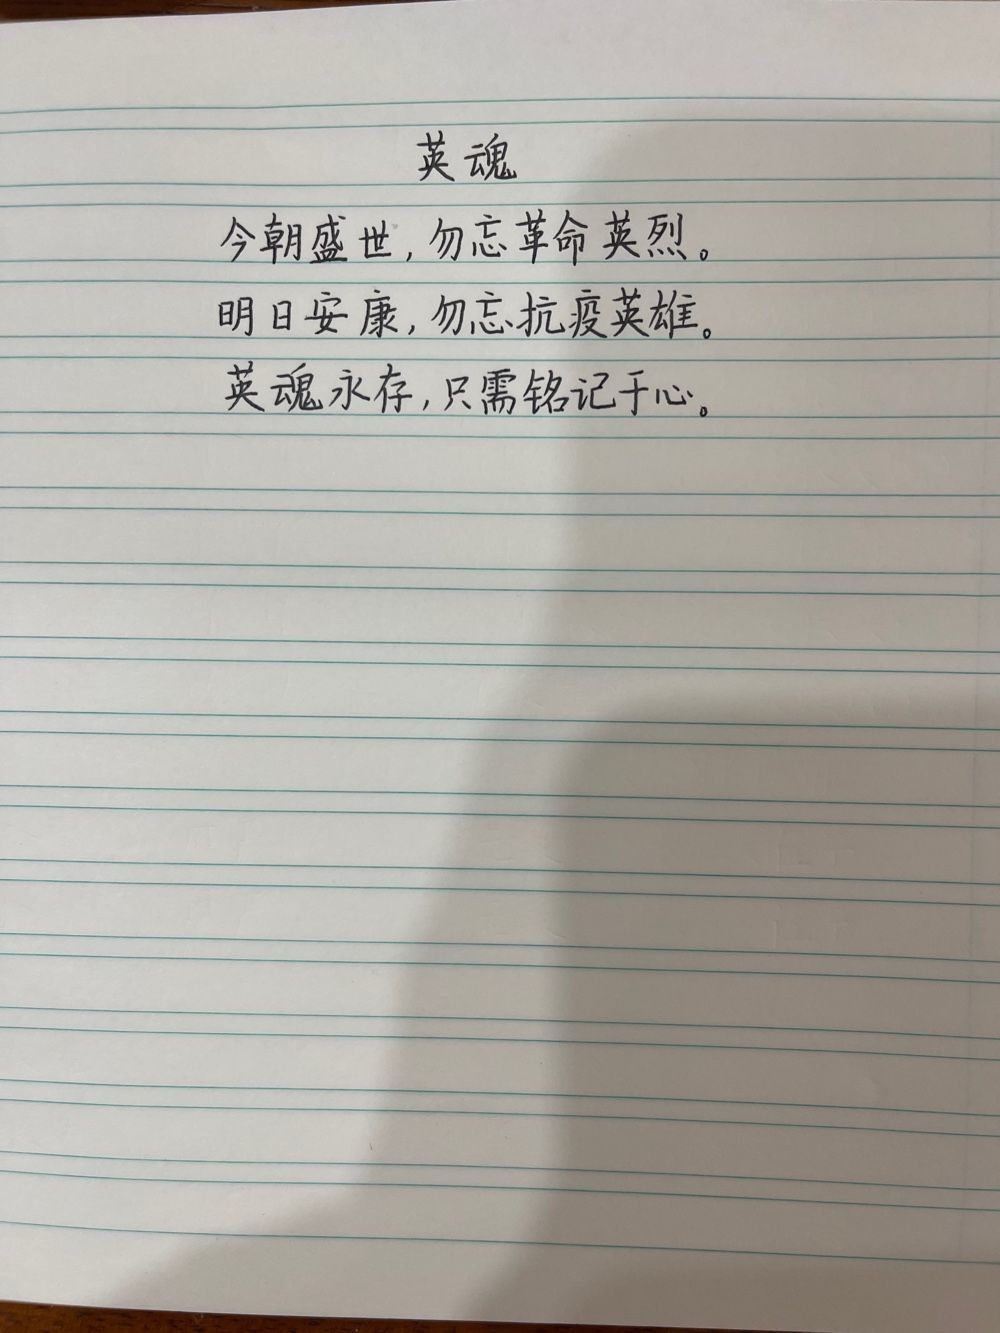 英魂
今朝盛世，勿忘革命英烈。
明日安康，勿忘抗疫英雄。
英魂永存，只需铭记于心。